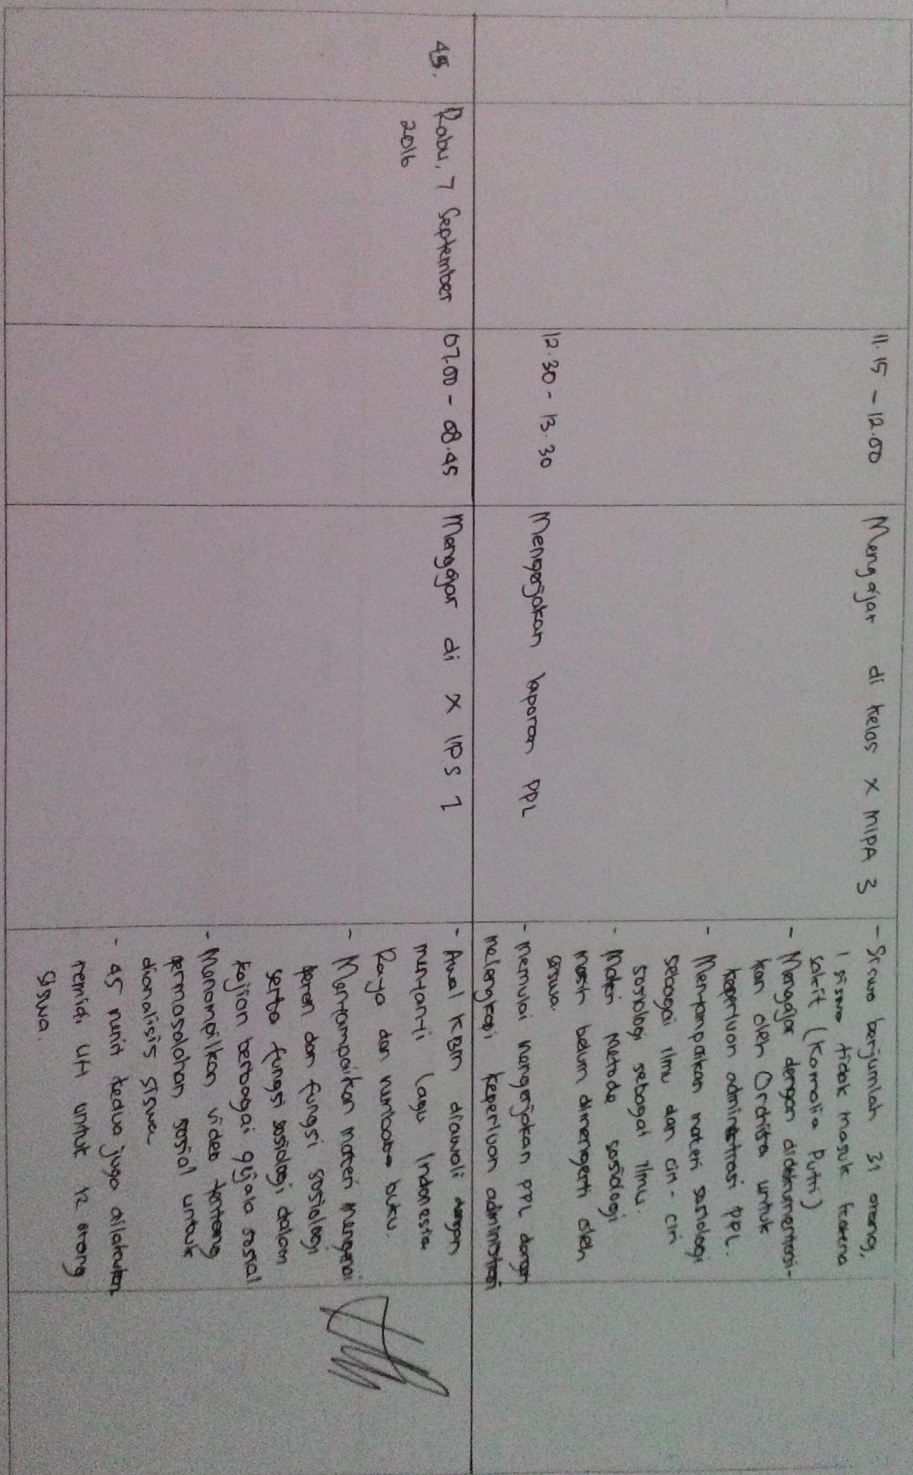 11.15 - 12.00
Mengajar di kelas X MIPA 3
- Siswa berjumlah 31 orang,
1 siswa tidak masuk karena
sakit (Kornalia Putri)
- Mengajar dengan didokumentasi-
kan oleh Ordhitra untuk
keperluan administrasi PPL.
- Menyampaikan materi sosiologi
sebagai ilmu dan ciri-ciri
sosiologi sebagai ilmu.
- Materi metode sosiologi
masih belum dimengerti oleh
siswa.
12.30 - 13.30
Mengerjakan laporan PPL
- Memulai mengerjakan PPL dengan
melengkapi keperluan administrasi
45.
Rabu, 7 September
2016
07.00 - 08.45
Mengajar di X IIPS 2
- Awal KBM diawali dengan
menyanyi lagu Indonesia
Raya dan buku.
- Menyampaikan materi mengenai
peran dan fungsi sosiologi
serta fungsi sosiologi dalam
kajian berbagai gejala sosial
- Menampilkan video tentang
permasalahan sosial untuk
dianalisis siswa
- 45 menit kedua juga dilakukan
remidi UH untuk 12 orang
siswa.